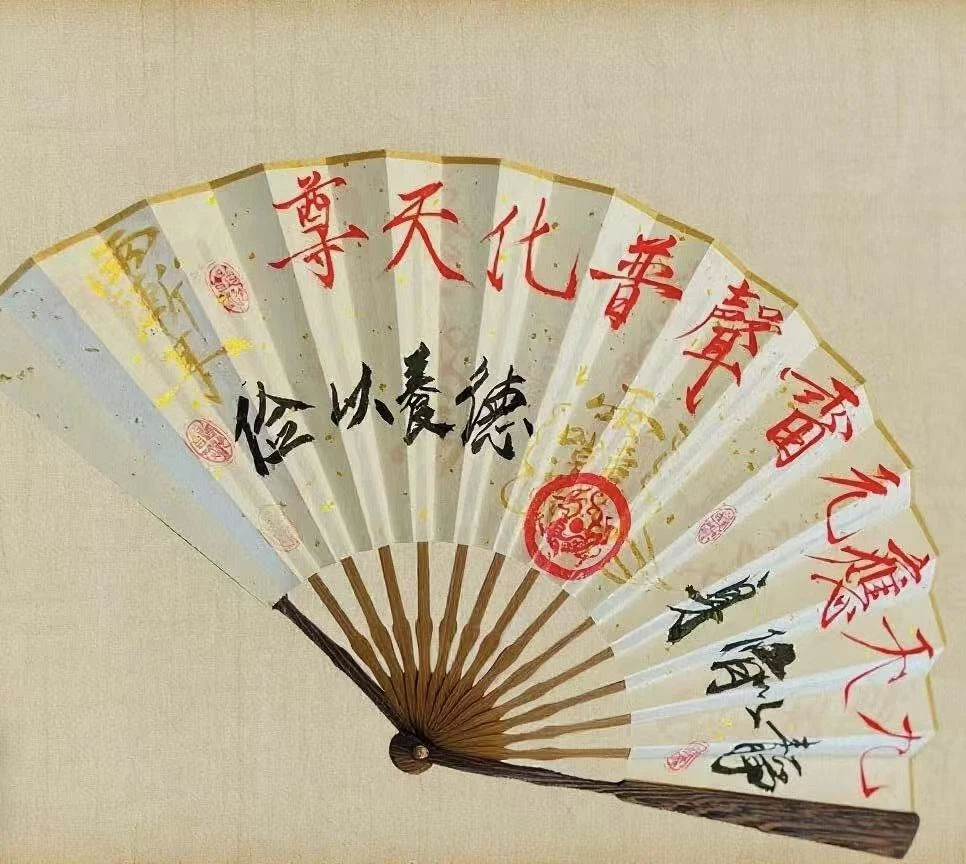 九天應元雷聲普化天尊
靜以脩身
俭以養德